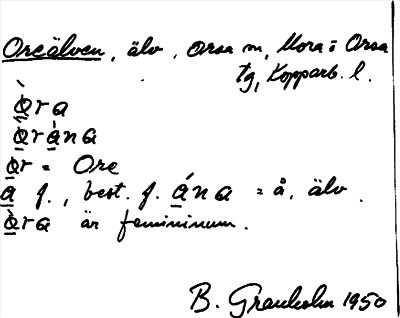 Oreälven, älv, Orsa m, Mora o Orsa
tg, Kopparb. l.
òra
òràna
òr = Ore
a f., best. f. ána = å, älv.
òra är femininum.
B. Granholm 1950